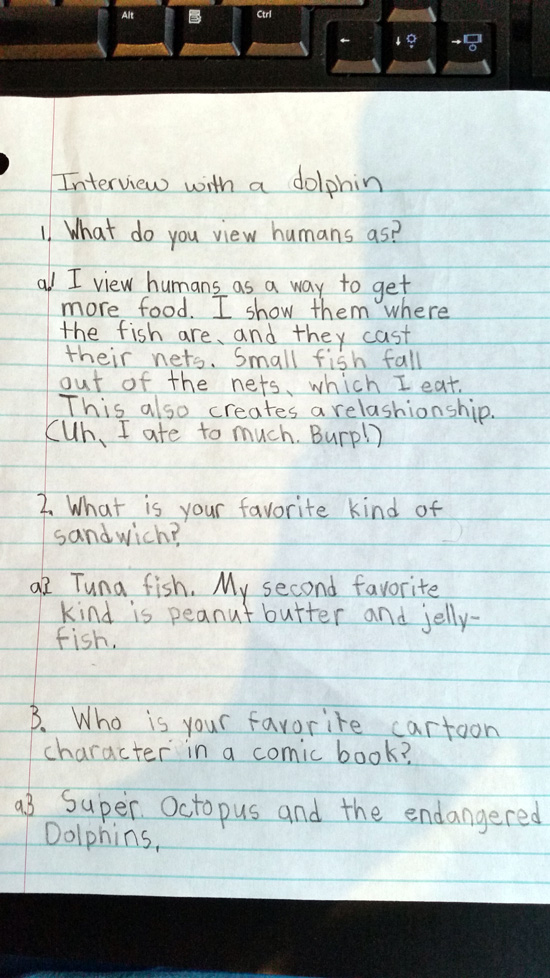 Alt
Ctrl
Interview with a dolphin
1. What do you view humans as?
a1 I view humans as a way to get
more food. I show them where
the fish are, and they cast
their nets. Small fish fall
out of the nets, which I eat.
This also creates a relashionship.
(Uh, I ate to much. Burp!)
2. What is your favorite kind of
sandwich?
a2 Tuna fish. My second favorite
kind is peanut butter and jelly-
fish.
3. Who is your favorite cartoon
character in a comic book?
a3 Super Octopus and the endangered
Dolphins,